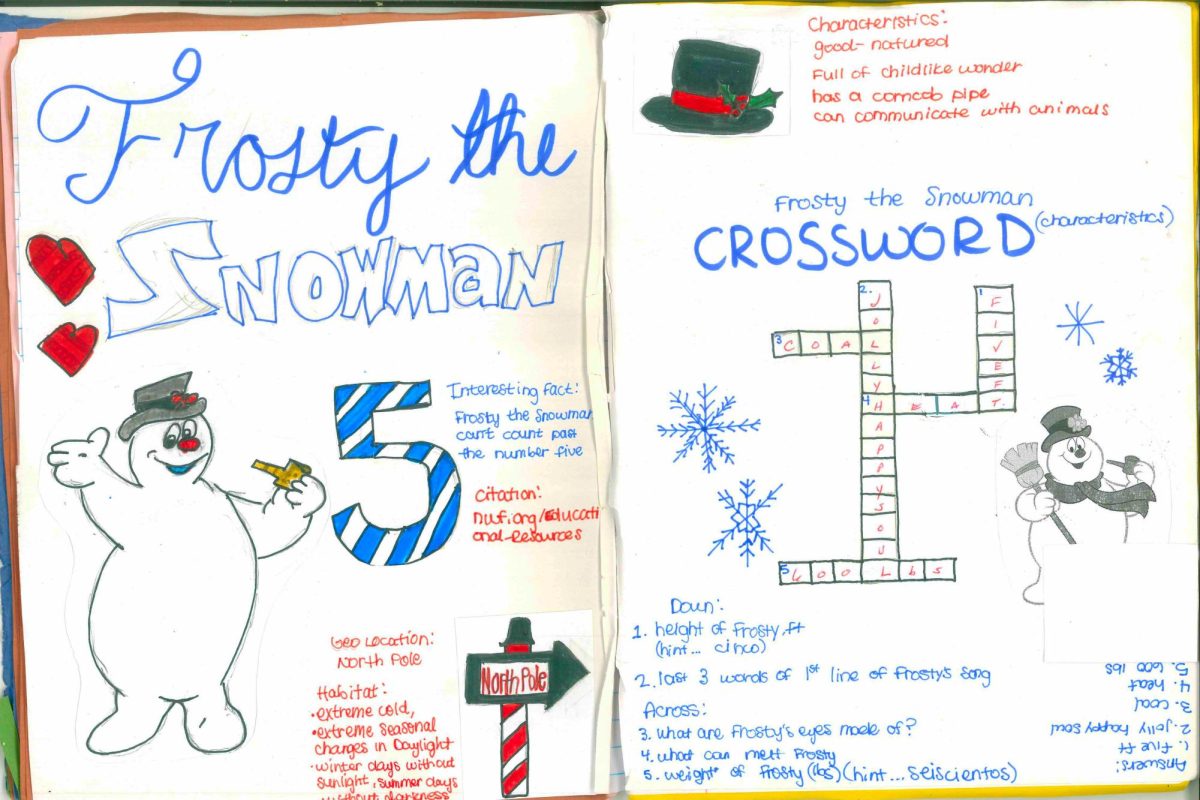 Frosty the
Snowman
Interesting fact:
Frosty the Snowman
can't count past
the number five
5
Citation:
nwf.org/Educati
onal-Resources
Geo Location:
North Pole
Habitat:
•extreme cold,
•extreme seasonal
changes in Daylight
•winter days without
sunlight, summer days
without darkness
North Pole
Characteristics:
good-natured
Full of childlike wonder
has a corncob pipe
can communicate with animals
Frosty the Snowman
CROSSWORD (characteristics)
2. JOLLYHAPPYSOUL
1 FIVEFT.
3 COAL
4 HEAT
5 600Lbs
Down:
1. height of Frosty ft
(hint... cinco)
2. last 3 words of 1st line of Frosty's song
Across:
3. what are Frosty's eyes made of?
4. what can melt Frosty
5. weight of Frosty (lbs) (hint... seiscientos)
Answers:
1. five ft
2. jolly happy soul
3. coal
4. heat
5. 600 lbs